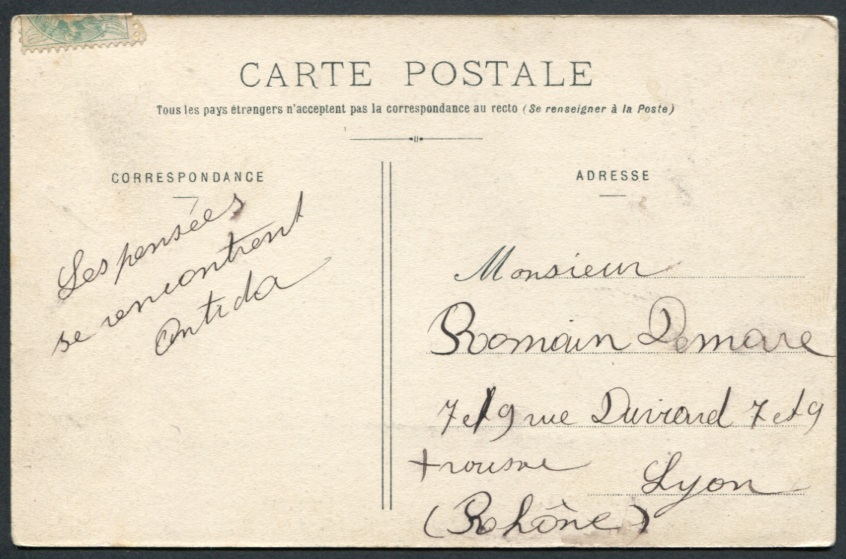 CARTE POSTALE
Tous les pays étrangers n'acceptent pas la correspondance au recto (Se renseigner à la Poste)
CORRESPONDANCE
Les pensées
se rencontrent
ADRESSE
Monsieur
Romain Demare
7 et 9 rue 7 et 9
Lyon
(Rhône)